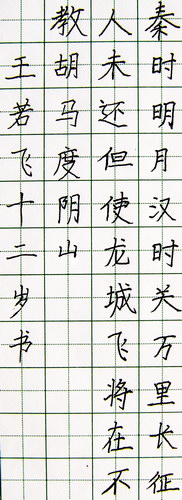 秦时明月汉时关万里长征
人未还但使龙城飞将在不
教胡马度阴山
王若飞十二岁书